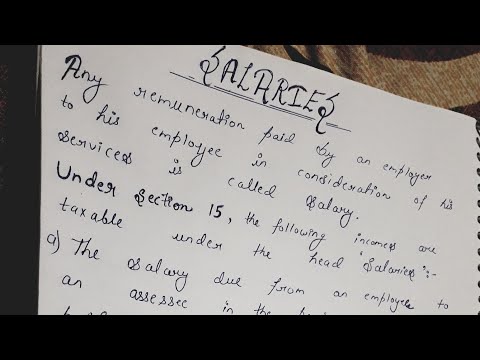 SALARIES
Any remuneration paid by an employer
to his employee in consideration of his
services is called salary.
Under section 15, the following incomes are
taxable under the head "Salaries":-
a) The salary due from an employer to
an assessee in the